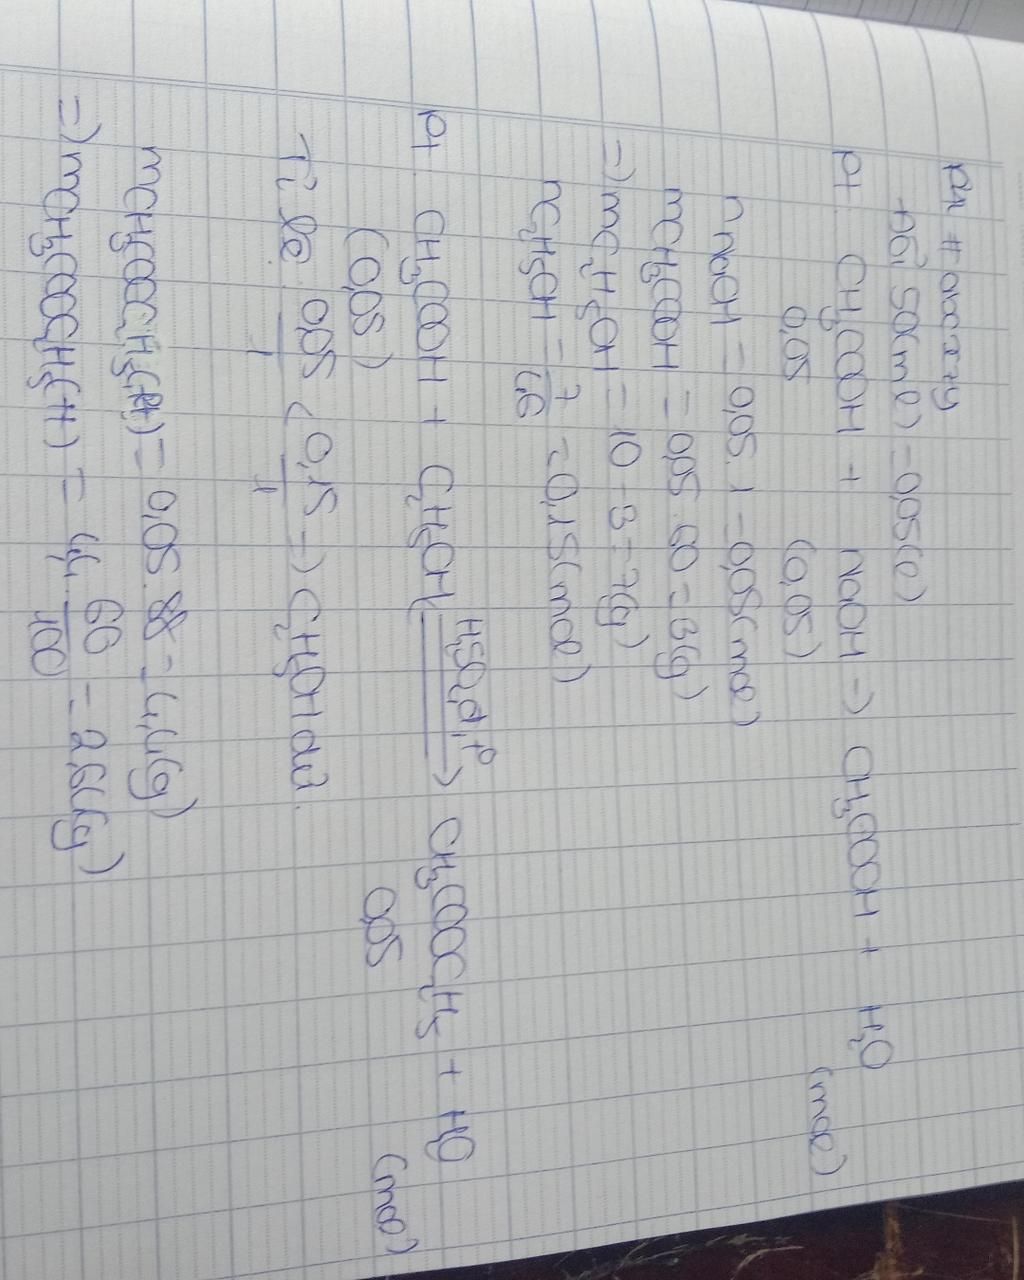 - Đổi 50(ml) = 0,05(l)
pt CH3COOH + NaOH → CH3COOH + H2O
0,05 (0,05) (mol)
nNaOH = 0,05.1 = 0,05(mol)
mCH3COOH = 0,05.60 = 3(g)
=) mC2H5OH = 10 - 3 = 7(g)
nC2H5OH = 7/46 = 0,15(mol)
pt CH3COOH + C2H5OH H2SO4đ, t° → CH3COOC2H5 + H2O
(0,05) 0,05 (mol)
Tỉ lệ: 0,05/1 < 0,15/1 → C2H5OH dư.
mCH3COOC2H5(lt) = 0,05.88 = 4,4(g)
=) mCH3COOC2H5(tt) = 4,4.60/100 = 2,64(g)